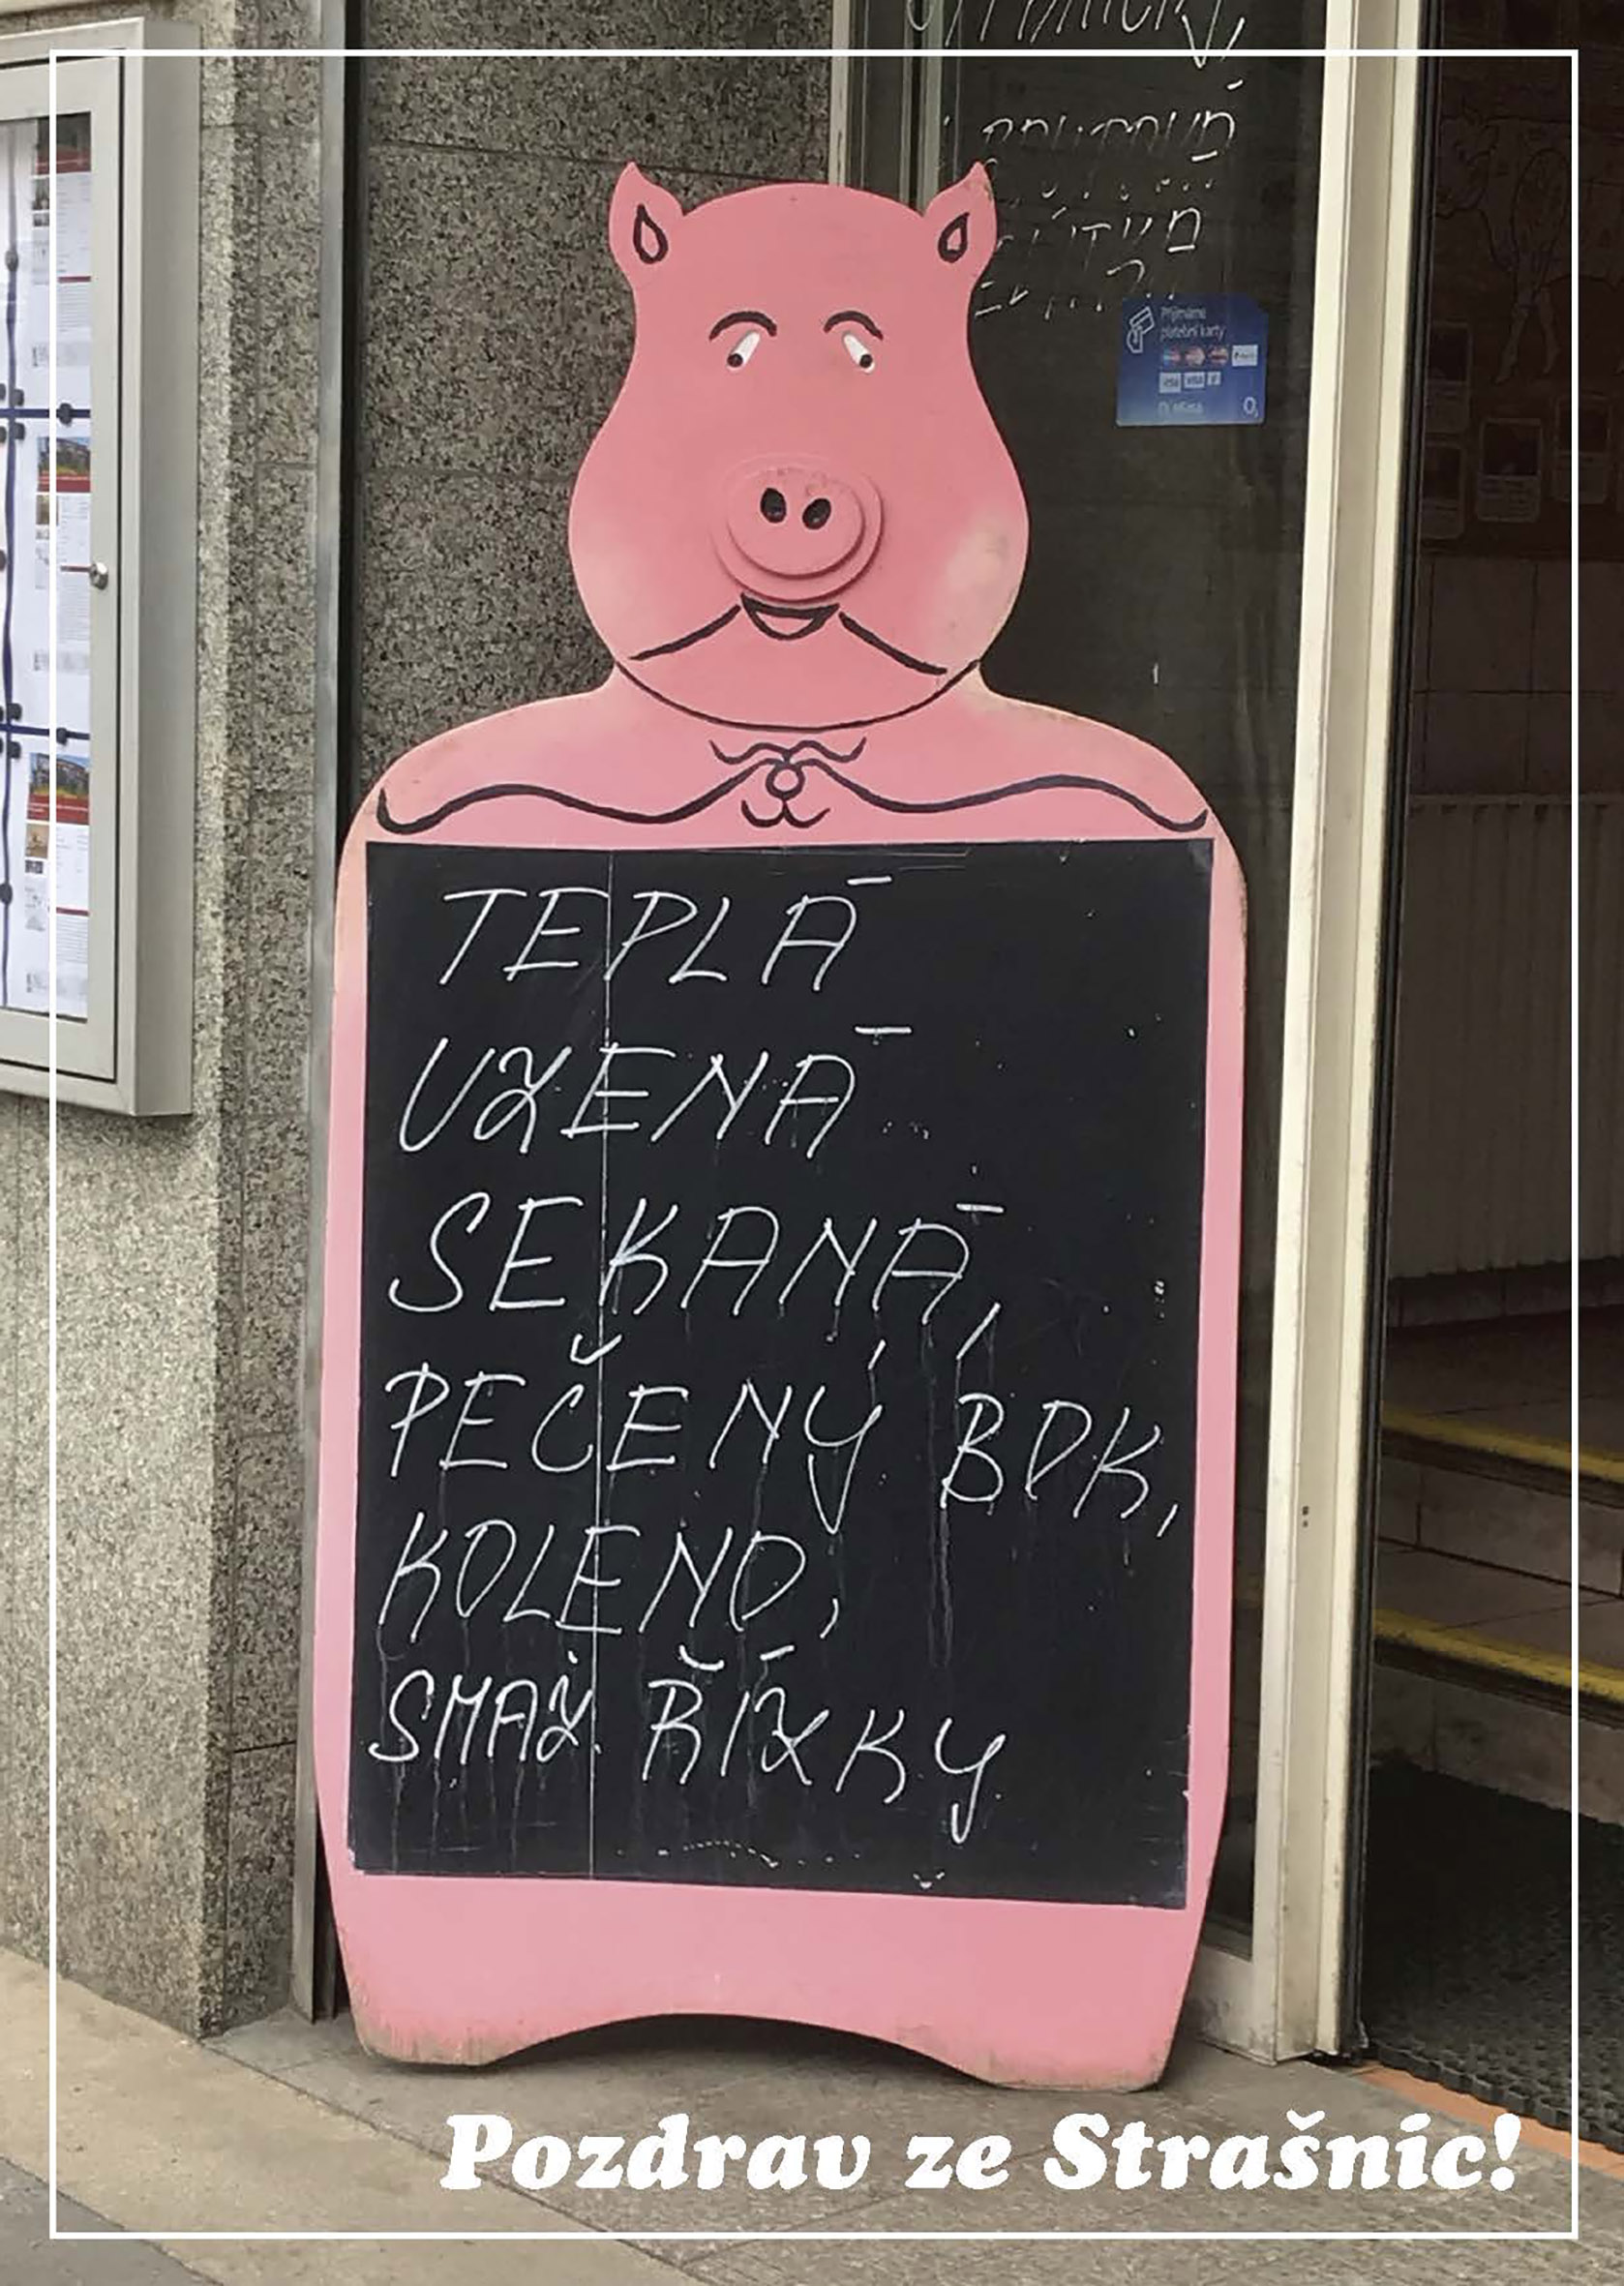 Přijímáme
platební karty
VISA VISA
O₂
TEPLÁ
UZENÁ
SEKANÁ,
PEČENÝ BOK,
KOLENO,
SMAŽ. ŘÍZKY
Pozdrav ze Strašnic!